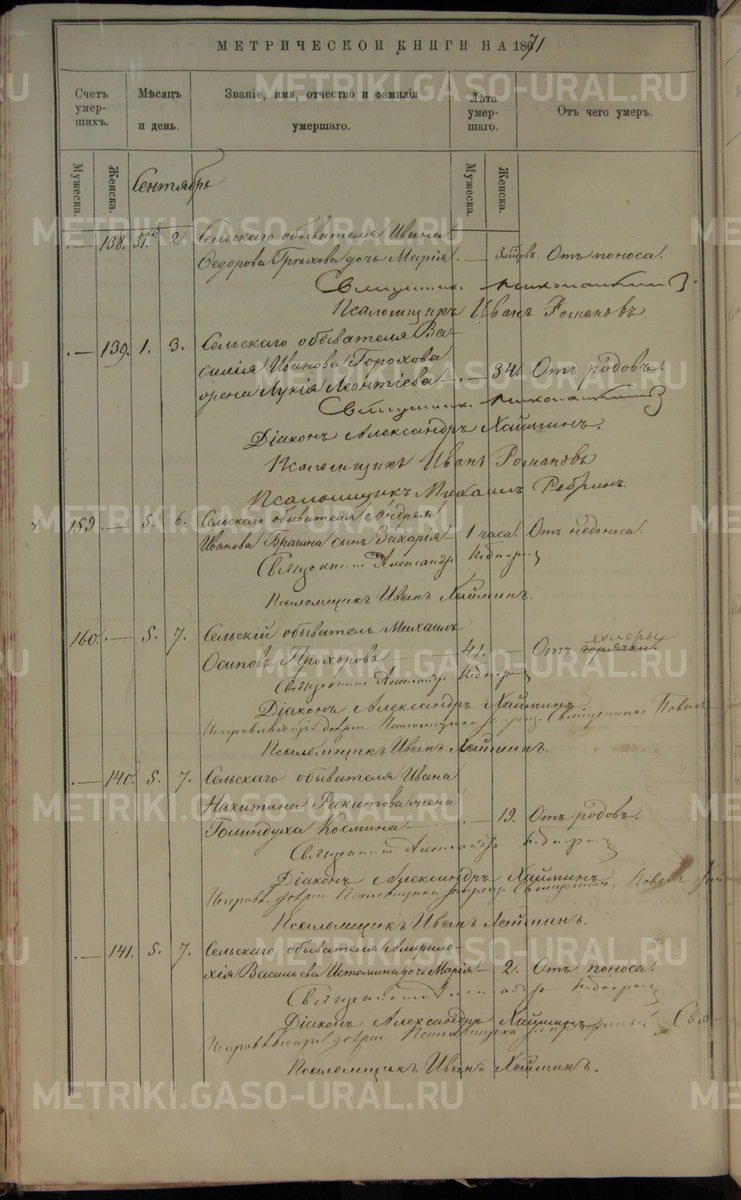 МЕТРИЧЕСКОЙ КНИГИ НА 1871
Счетъ умер-шихъ. Мѣсяцъ и день. Званіе, имя, отчество и фамилія умершаго. Лѣта умер-шаго. Отъ чего умеръ.
Мужеска. Женска. Мужеска. Женска.
Сентябрь
138. 31. 2. Сельскаго обывателя Ивана
Ѳедорова Грѣхова дочь Марія. Отъ поноса.
Священникъ
Псаломщикъ Иванъ Романовъ
139. 1. 3. Сельскаго обывателя Ва-
силія Иванова Горохова
жена Лукія Леонтіева 34. Отъ родовъ.
Священникъ
Діаконъ Александръ Хаймин.
Псаломщикъ Иванъ Романовъ
Псаломщикъ Михаилъ Ребринъ.
159. 5. 6. Сельскаго обывателя Андрея
Иванова Брагина сынъ Захарія 1 часа. Отъ недоноса.
Священникъ Александръ
Псаломщикъ Иванъ Хайминъ.
160. 5. 7. Сельскій обыватель Михаилъ холеры
Осиповъ Прохоровъ 41. Отъ горячки.
Священникъ Александръ
Діаконъ Александръ Хайминъ
Псаломщика Священникъ Павелъ
Псаломщикъ Иванъ Хайминъ.
140. 5. 7. Сельскаго обывателя Ивана
Никитина Ракитова жена
Голиндуха Космина 19. Отъ родовъ.
Священникъ Александръ
Діаконъ Александръ Хайминъ
Псаломщика Священникъ Павелъ
Псаломщикъ Иванъ Хайминъ.
141. 5. 7. Сельскаго обывателя Амфило-
хія Васильева Истомина дочь Марія 2. Отъ поноса.
Священникъ Александръ
Діаконъ Александръ Хайминъ
Псаломщика
Псаломщикъ Иванъ Хайминъ.
METRIKI.GASO-URAL.RU